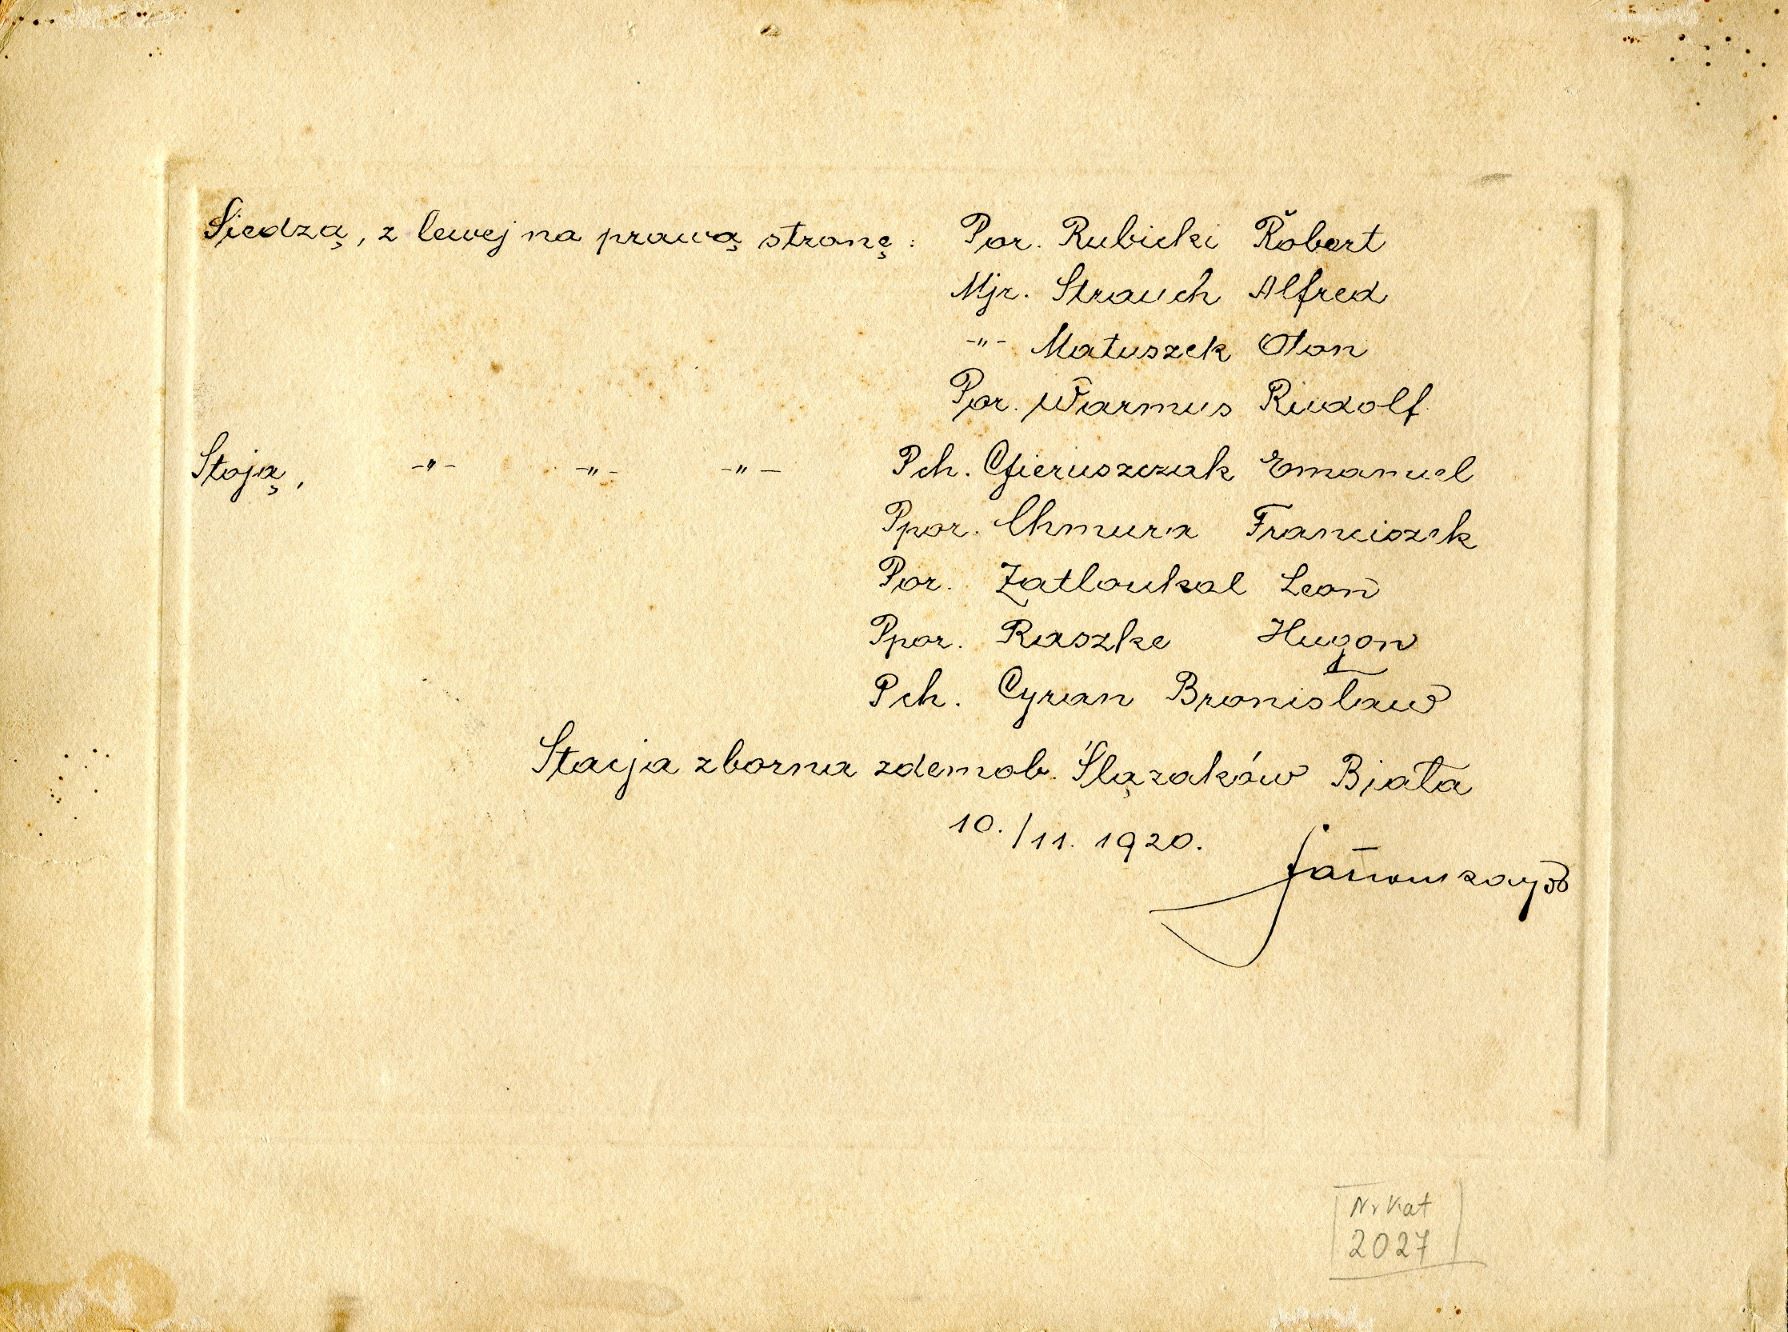 Siedzą, z lewej na prawą stronę: Por. Rubicki Robert
Mjr. Strauch Alfred
-"- Matuszek Oton
Por. Warmus Rudolf
Stoją, -"- -"- -"- Pch. Gieruszczak Emanuel
Ppor. Chmura Franciszek
Por. Zatloukal Leon
Ppor. Raszke Hugon
Pch. Cyran Bronisław
Stacja zborna zdemob. Ślązaków Biała
10./11. 1920.
Nr Kat
2027